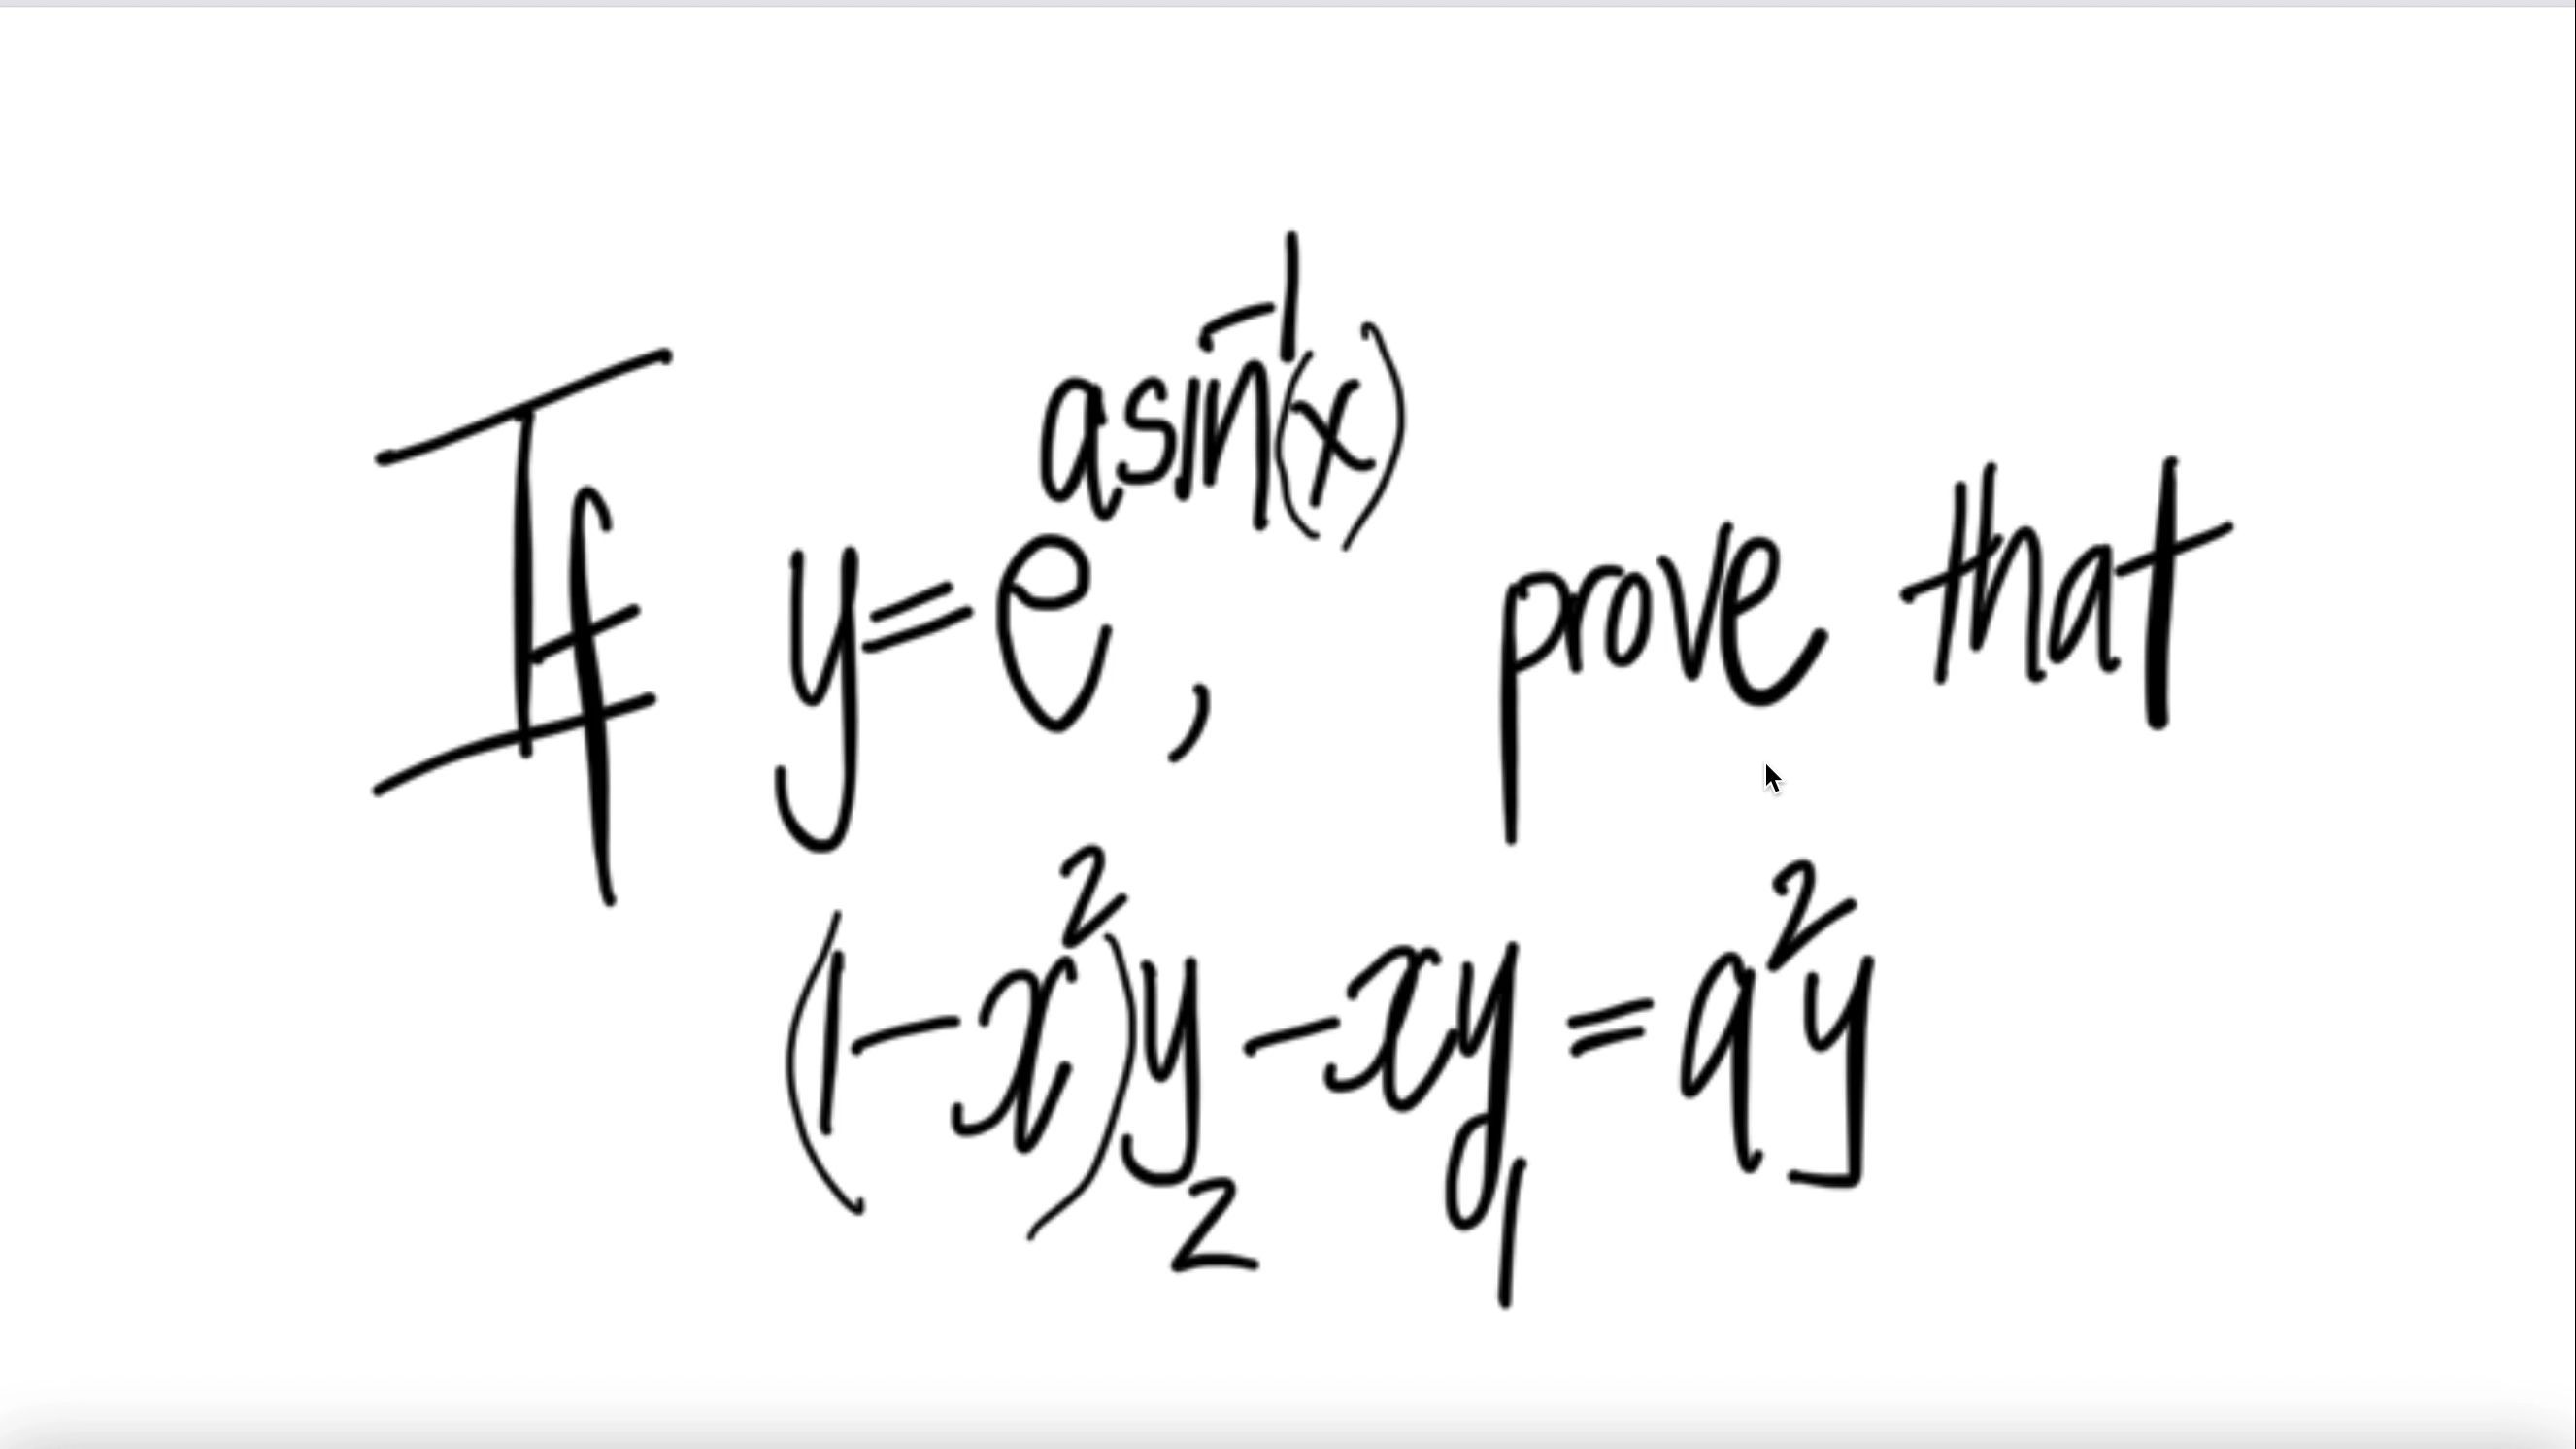 If y=e^{asin^{-1}(x)}, prove that
(1-x^2)y_2-xy_1=a^2y